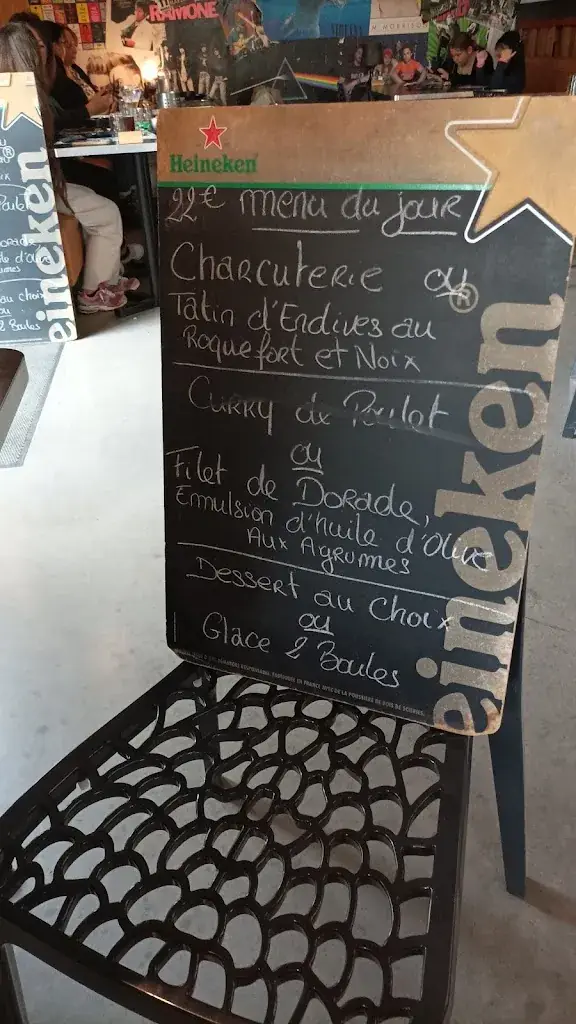 RAMONE
Heineken
22€ menu du jour
Charcuterie ou
Tatin d'Endives au
Roquefort et Noix
Curry de Poulet
ou
Filet de Dorade,
Emulsion d'huile d'Olive
Aux Agrumes
Dessert au Choix
ou
1 Glace 2 Boules
eineken®
eineken
Dorade
d'huile d'
au choix
ou
2 Boules